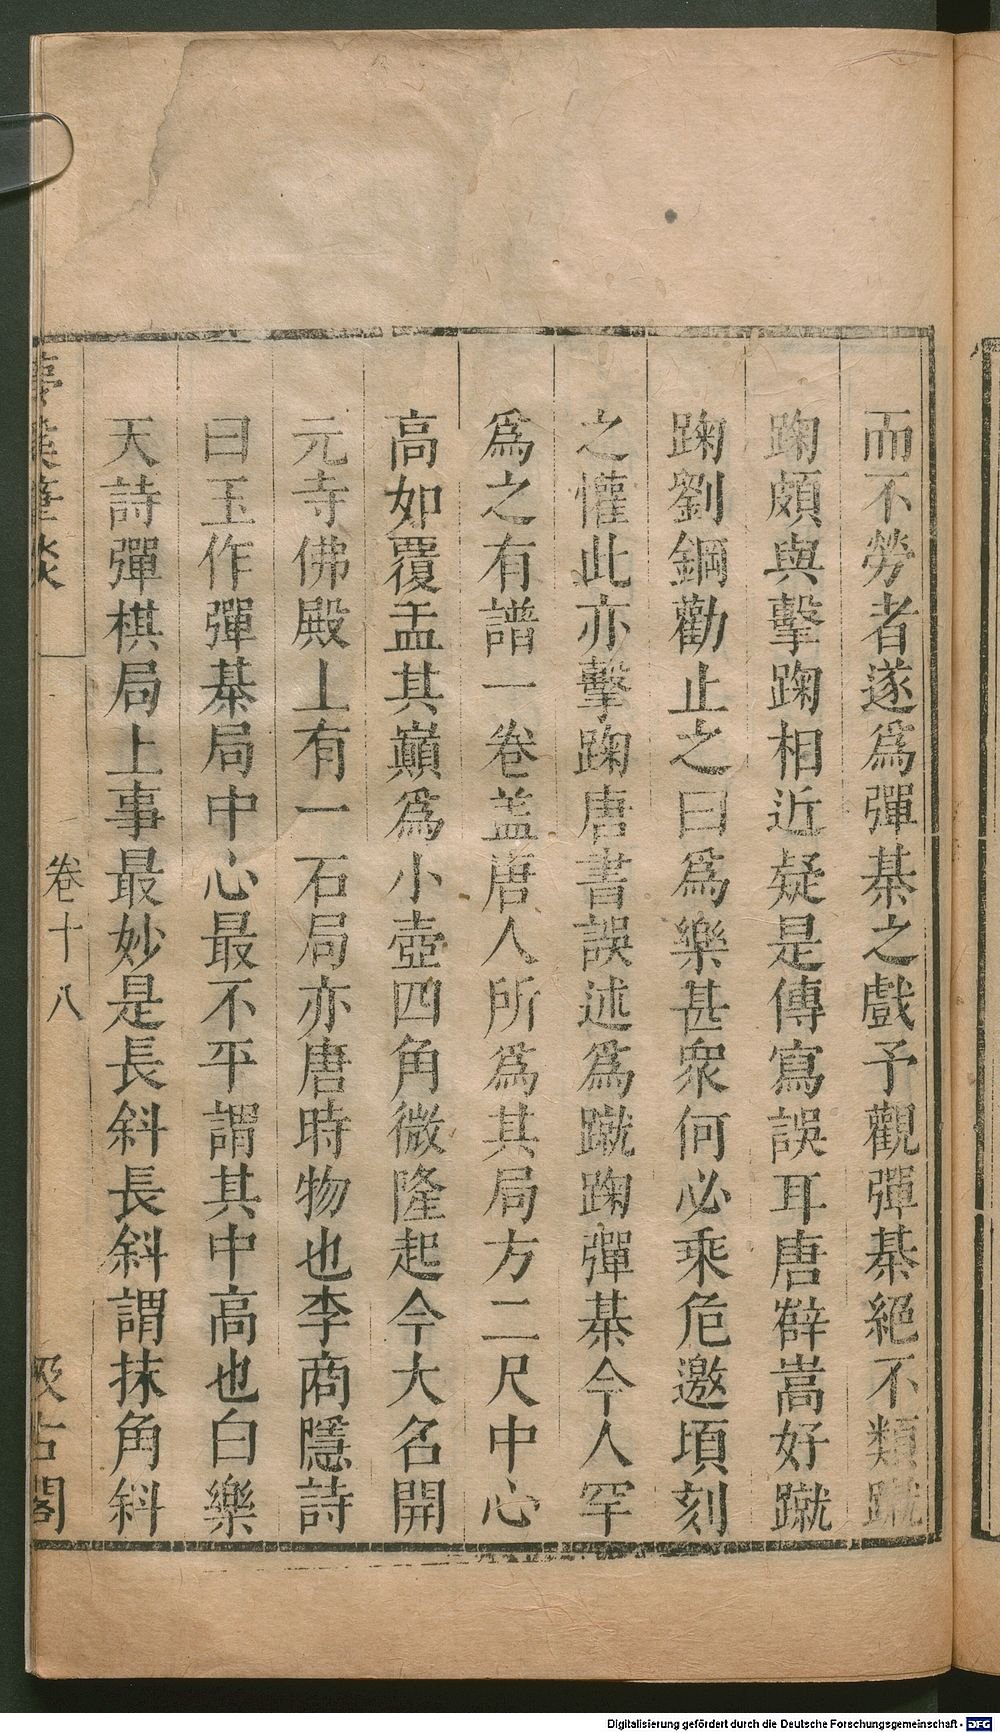 而不勞者遂爲彈棊之戲予觀彈棊絕不類蹴
踘頗與擊踘相近疑是傳寫誤耳唐薛嵩好蹴
踘劉鋼勸止之曰爲樂甚衆何必乘危邀頃刻
之懽此亦擊踘唐書誤述爲蹴踘彈棊今人罕
爲之有譜一卷盖唐人所爲其局方二尺中心
高如覆盂其巔爲小壺四角微隆起今大名開
元寺佛殿上有一石局亦唐時物也李商隱詩
曰玉作彈棊局中心最不平謂其中高也白樂
天詩彈棋局上事最妙是長斜長斜謂抹角斜
夢溪筆談
卷十八
汲古閣
Digitalisierung gefördert durch die Deutsche Forschungsgemeinschaft - DFG